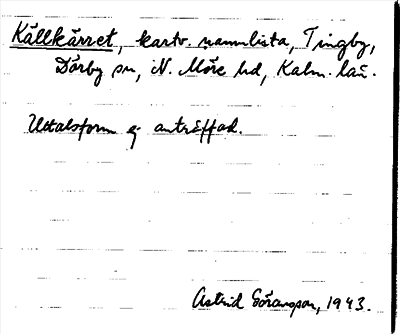 Källkärret, kartv. namnlista, Tingby,
Dörby sn, N. Möre hd, Kalm. län.
Uttalsform ej anträffad.
Astrid Göransson, 1943.